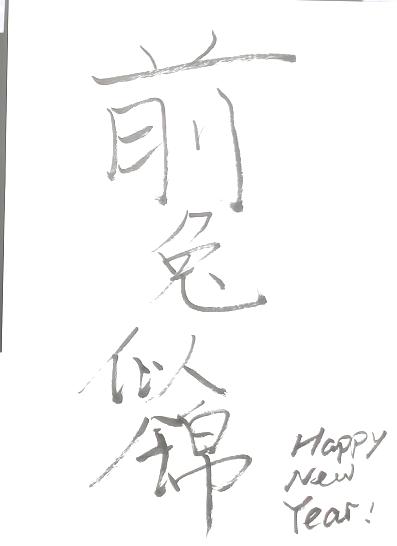 前
兔
似
锦
Happy
New
Year!